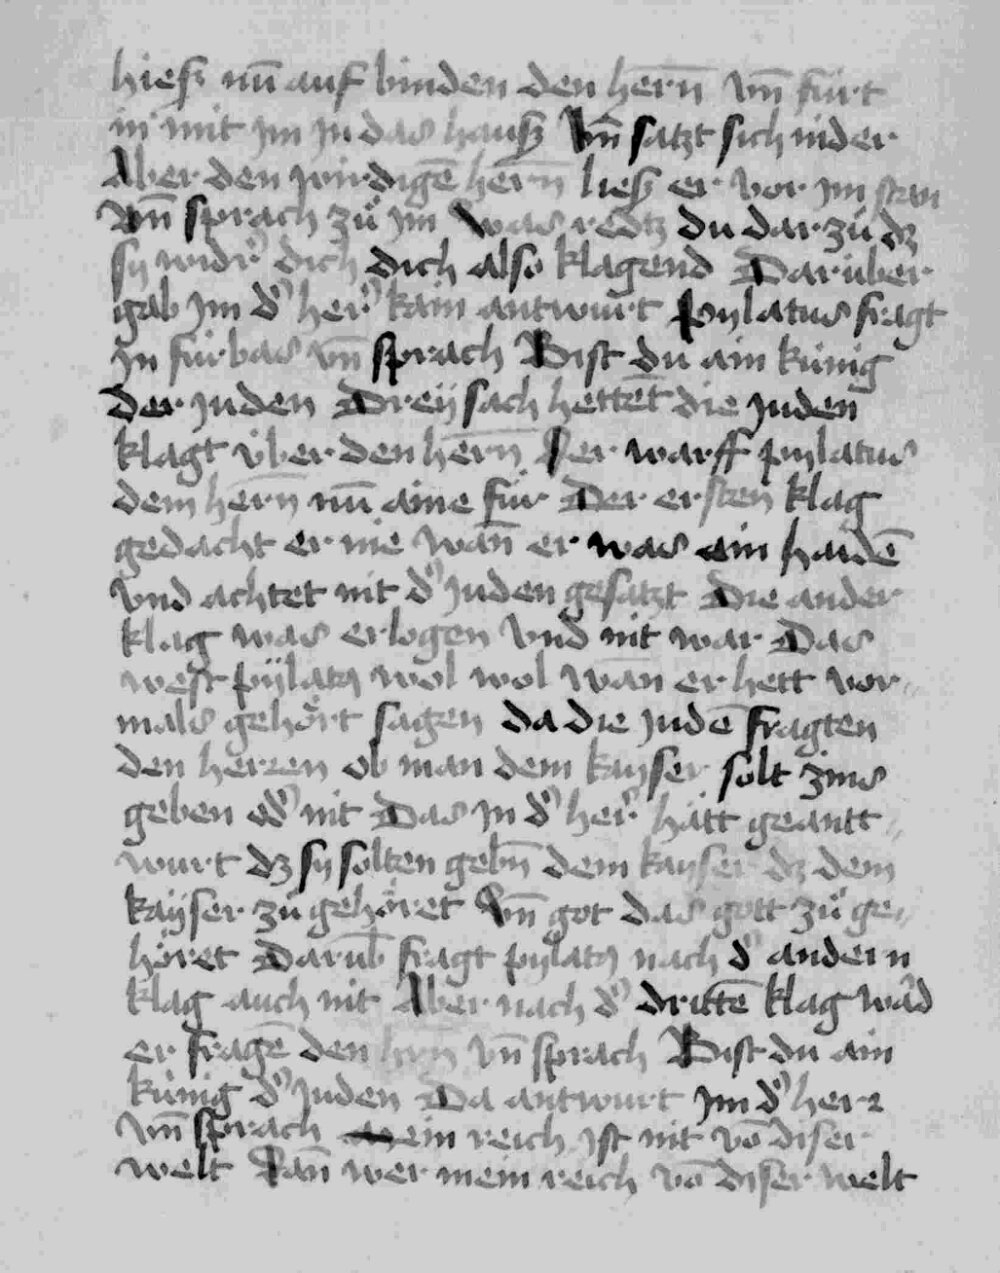 hiesß nū auf binden den herñ vn̄ fůrt
in mit jm jn das hausß Vn̄ satzt sich nider
Aber den wirdigē herñ liesß er vor jm sten
vn̄ sprach zů jm Was redtz du dar zů dz
sy wid᷒ dich dich also klagend Darüber
gab jm d᷒ her᷒ kain antwurt Pylatus fragt
jn fürbas vn̄ sprach Bist du ain künig
der juden Dreÿ sach hettēt die juden
klagt über den herñ Der warff pylatus
dem herñ nū aine für Der ersten klag
gedacht er nie wan̄ er was ein haidē
vnd achtet nit d᷒ juden gesatzt Die ander
klag was erlogen vnd nit war Das
west pÿlatꝯ wol wol wan̄ er hett vor⸗
mals gehört sagen da die judē fragten
den herren ob man dem kayser solt zins
geben od᷒ nit Das jn d᷒ her᷒ hätt geantt⸗
wurt dz sy solten gebn̄ dem kayser dz dem
kaÿser zů gehöret Vn̄ got das gott zů ge⸗
höret Darūb fragt pylatꝯ nach d᷒ andern
klag auch nit Aber nach d᷒ drittē klag ward
er fragē den hrn̄ vn̄ sprach Bist du ain
künig d᷒ juden Da antwurt jm d᷒ herr
vn̄ sprach Mein reich jst nit vō diser
welt Wan̄ wer mein reich vō diser welt